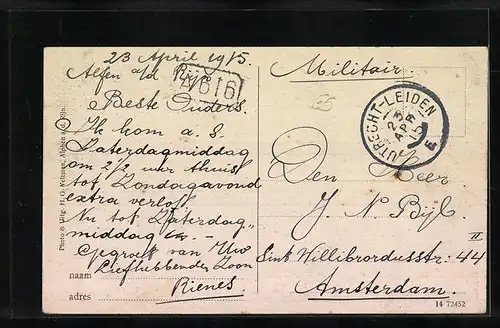 23 April 1915.
Alfen a/d Rijn
Beste Ouders.
Ik kom a. s.
Zaterdagmiddag
om 2½ uur thuis
tot Zondagavond
extra verlof.
Nu tot Zaterdag„
middag
Gegroet van Uw
Liefhebbenden Zoon
Rienes.
naam
adres
Militair.
UTRECHT-LEIDEN
23 APR 15
E
Den Heer
J. N. Bijl.
Sint Willibrordusstr. 44 II
Amsterdam.
14 72452